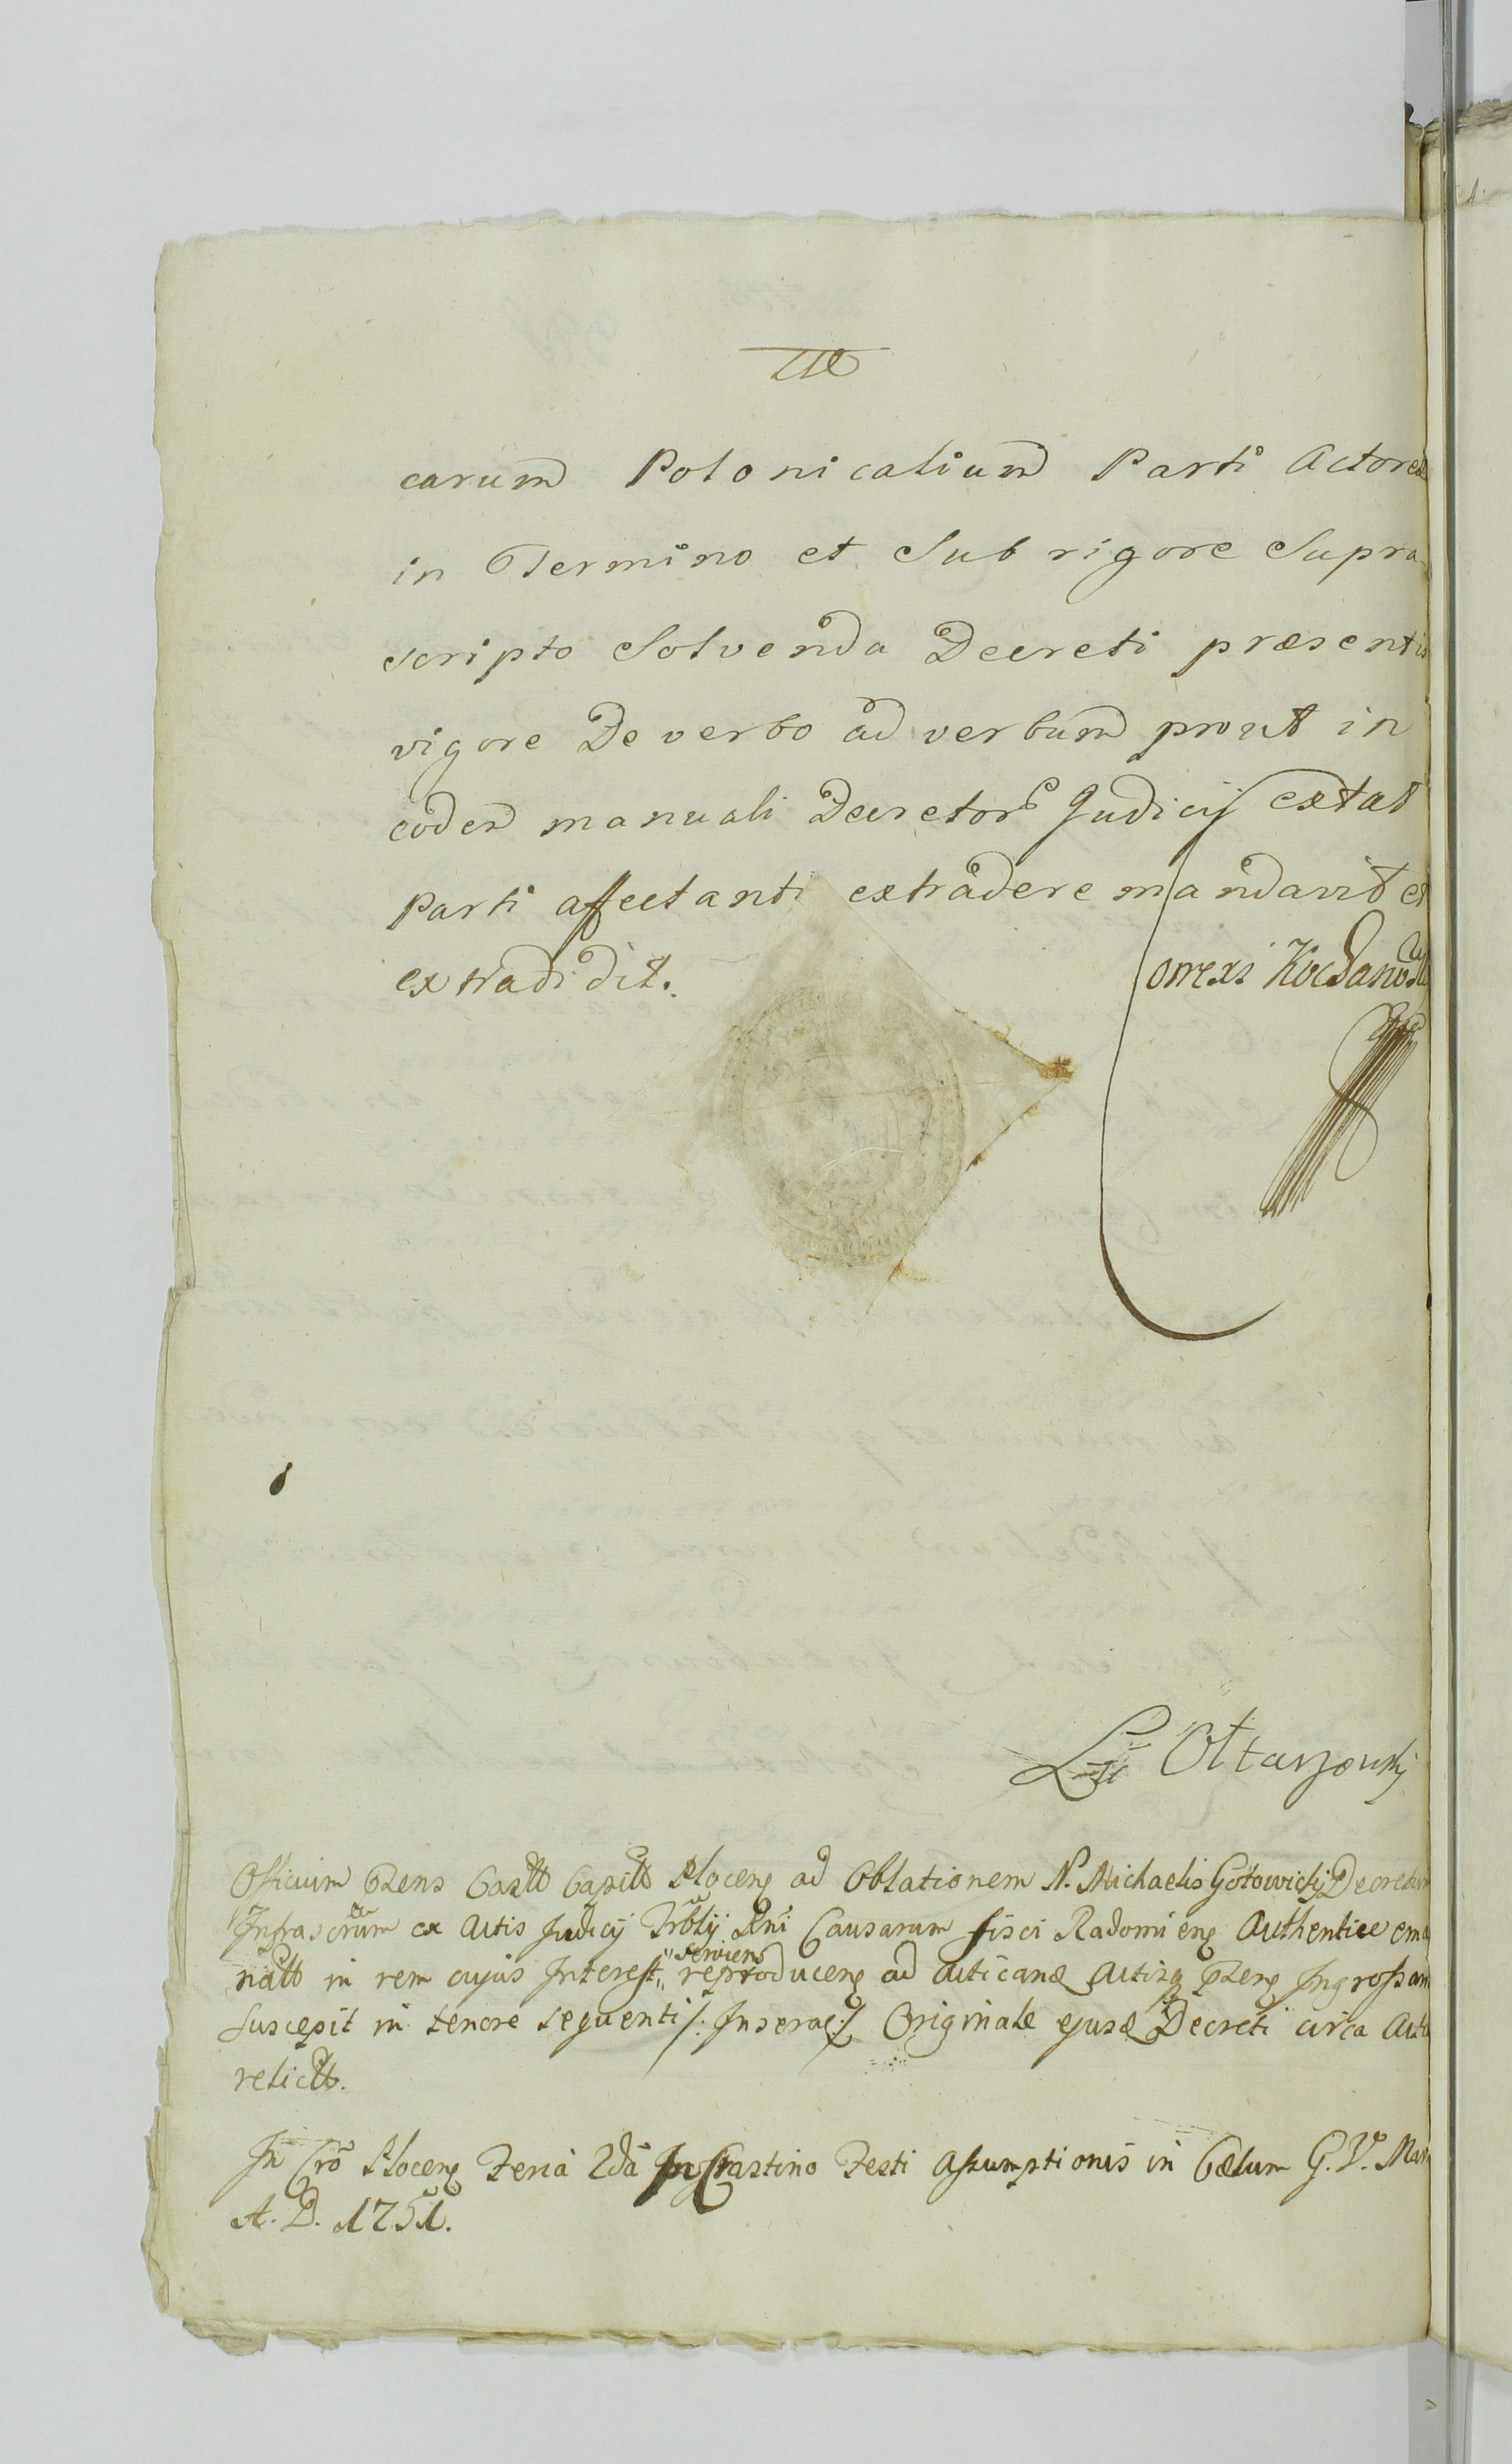 carum Polonicalium Parti Actorea
in Termino et Sub rigore Supra
scripto Solvenda Decreti præsentis
vigore De verbo ad verbum prout in
eodem manuali Decretor Judicij extat
Parti affectanti extradere mandavit et
extradidit.
Correxi
Officium Przens Castr Capitt Plocens ad Oblationem N. Michaelis Gotowickij Decretum
Infrascrtum ex Actis Judicij Trblij Rni Causarum fisci Radomiens Authentice ema
natt in rem cujus Interest serviens reproducens ad acticand Actisq Przens Ingrossand
Suscepit in tenore sequenti /: Inserat :/ Originale ejusd Decreti circa Acta
relictt.
In Cro Plocens Feria 2da In Crastino Festi Assumptionis in Cælum G. V. Mar
A. D. 1751.